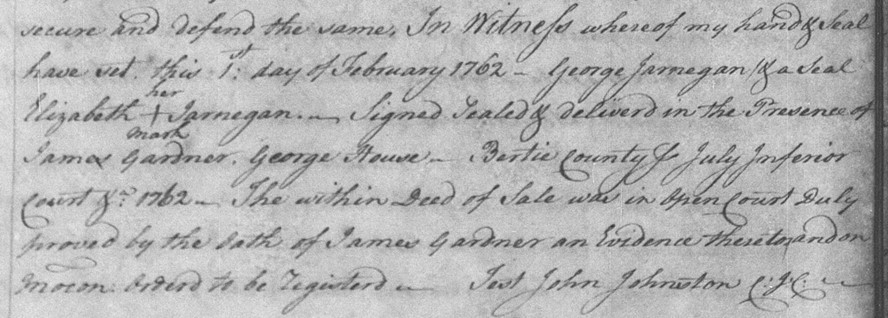 secure and defend the same, In Witness whereof my hand & Seal
have set. this 1st: day of February 1762 — George Jarnegan /& a Seal
her
Elizabeth + Jarnegan. — Signed Sealed & deliverd in the Presence of
mark
James Gardner. George House — Bertie County Ss July Inferior
Court &ca 1762 — The within Deed of Sale was in Open Court Duly
proved by the Oath of James Gardner an Evidence thereto and on
Mocon. Orderd to be Registerd — Test John Johnston C: J: C: —